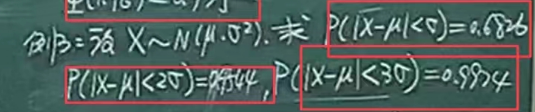 例3=设 X~N(μ·σ²). 求 P(|X-μ|<σ)=0.6826
P(|X-μ|<2σ)=0.9544, P(|X-μ|<3σ)=0.9974